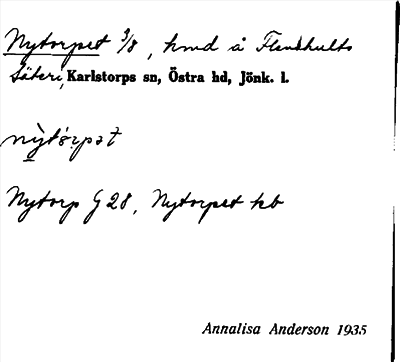 Nytorpet 3/8, hmd å Flenshults
Säteri, Karlstorps sn, Östra hd, Jönk. l.
nỳtórpət
Nytorp G 28, Nytorpet kb
Annalisa Anderson 1935